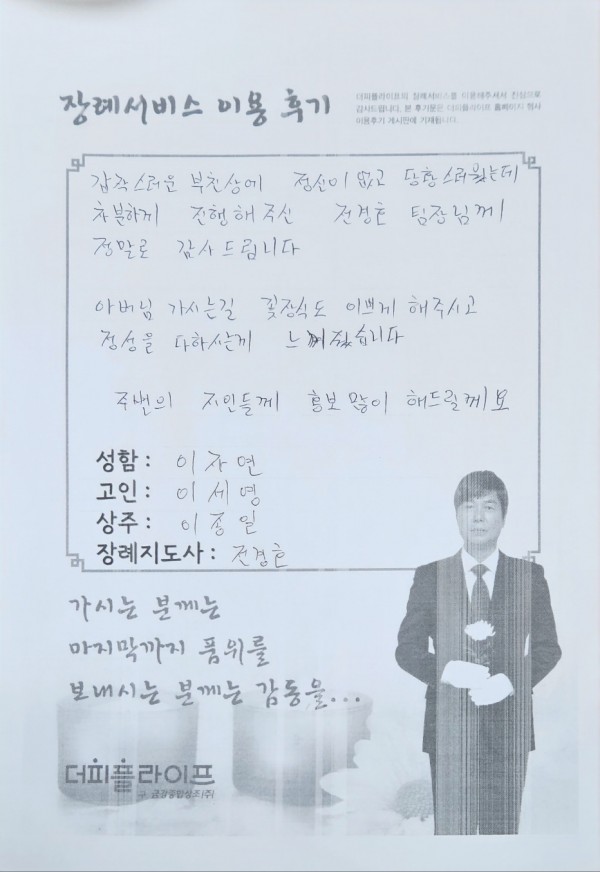 장례서비스 이용 후기
더피플라이프의 장례서비스를 이용해주셔서 진심으로
감사드립니다. 본 후기문은 더피플라이프 홈페이지 행사
이용후기 게시판에 기재됩니다.
갑작스러운 부친상에 정신이 없고 당황스러웠는데
차분하게 진행해주신 전경훈 팀장님께
정말로 감사드립니다
아버님 가시는길 꽃장식도 이쁘게 해주시고
정성을 다하시는게 느껴졌습니다
주변의 지인들께 홍보 많이 해드릴께요
성함 : 이자연
고인 : 이세영
상주 : 이종일
장례지도사 : 전경훈
가시는 분께는
마지막까지 품위를
보내시는 분께는 감동을...
더피플라이프
구. 금강종합상조(주)